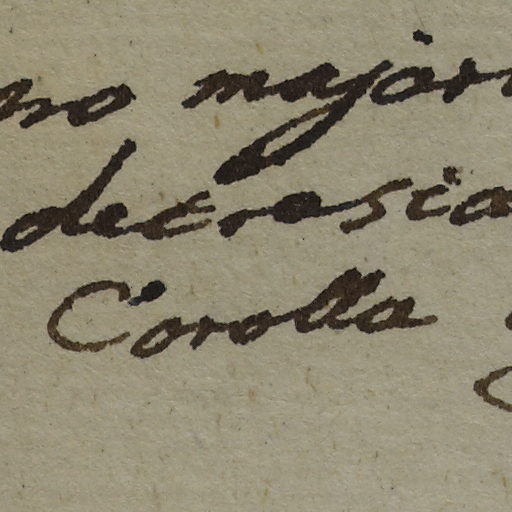 no major
decrasia
Corolla